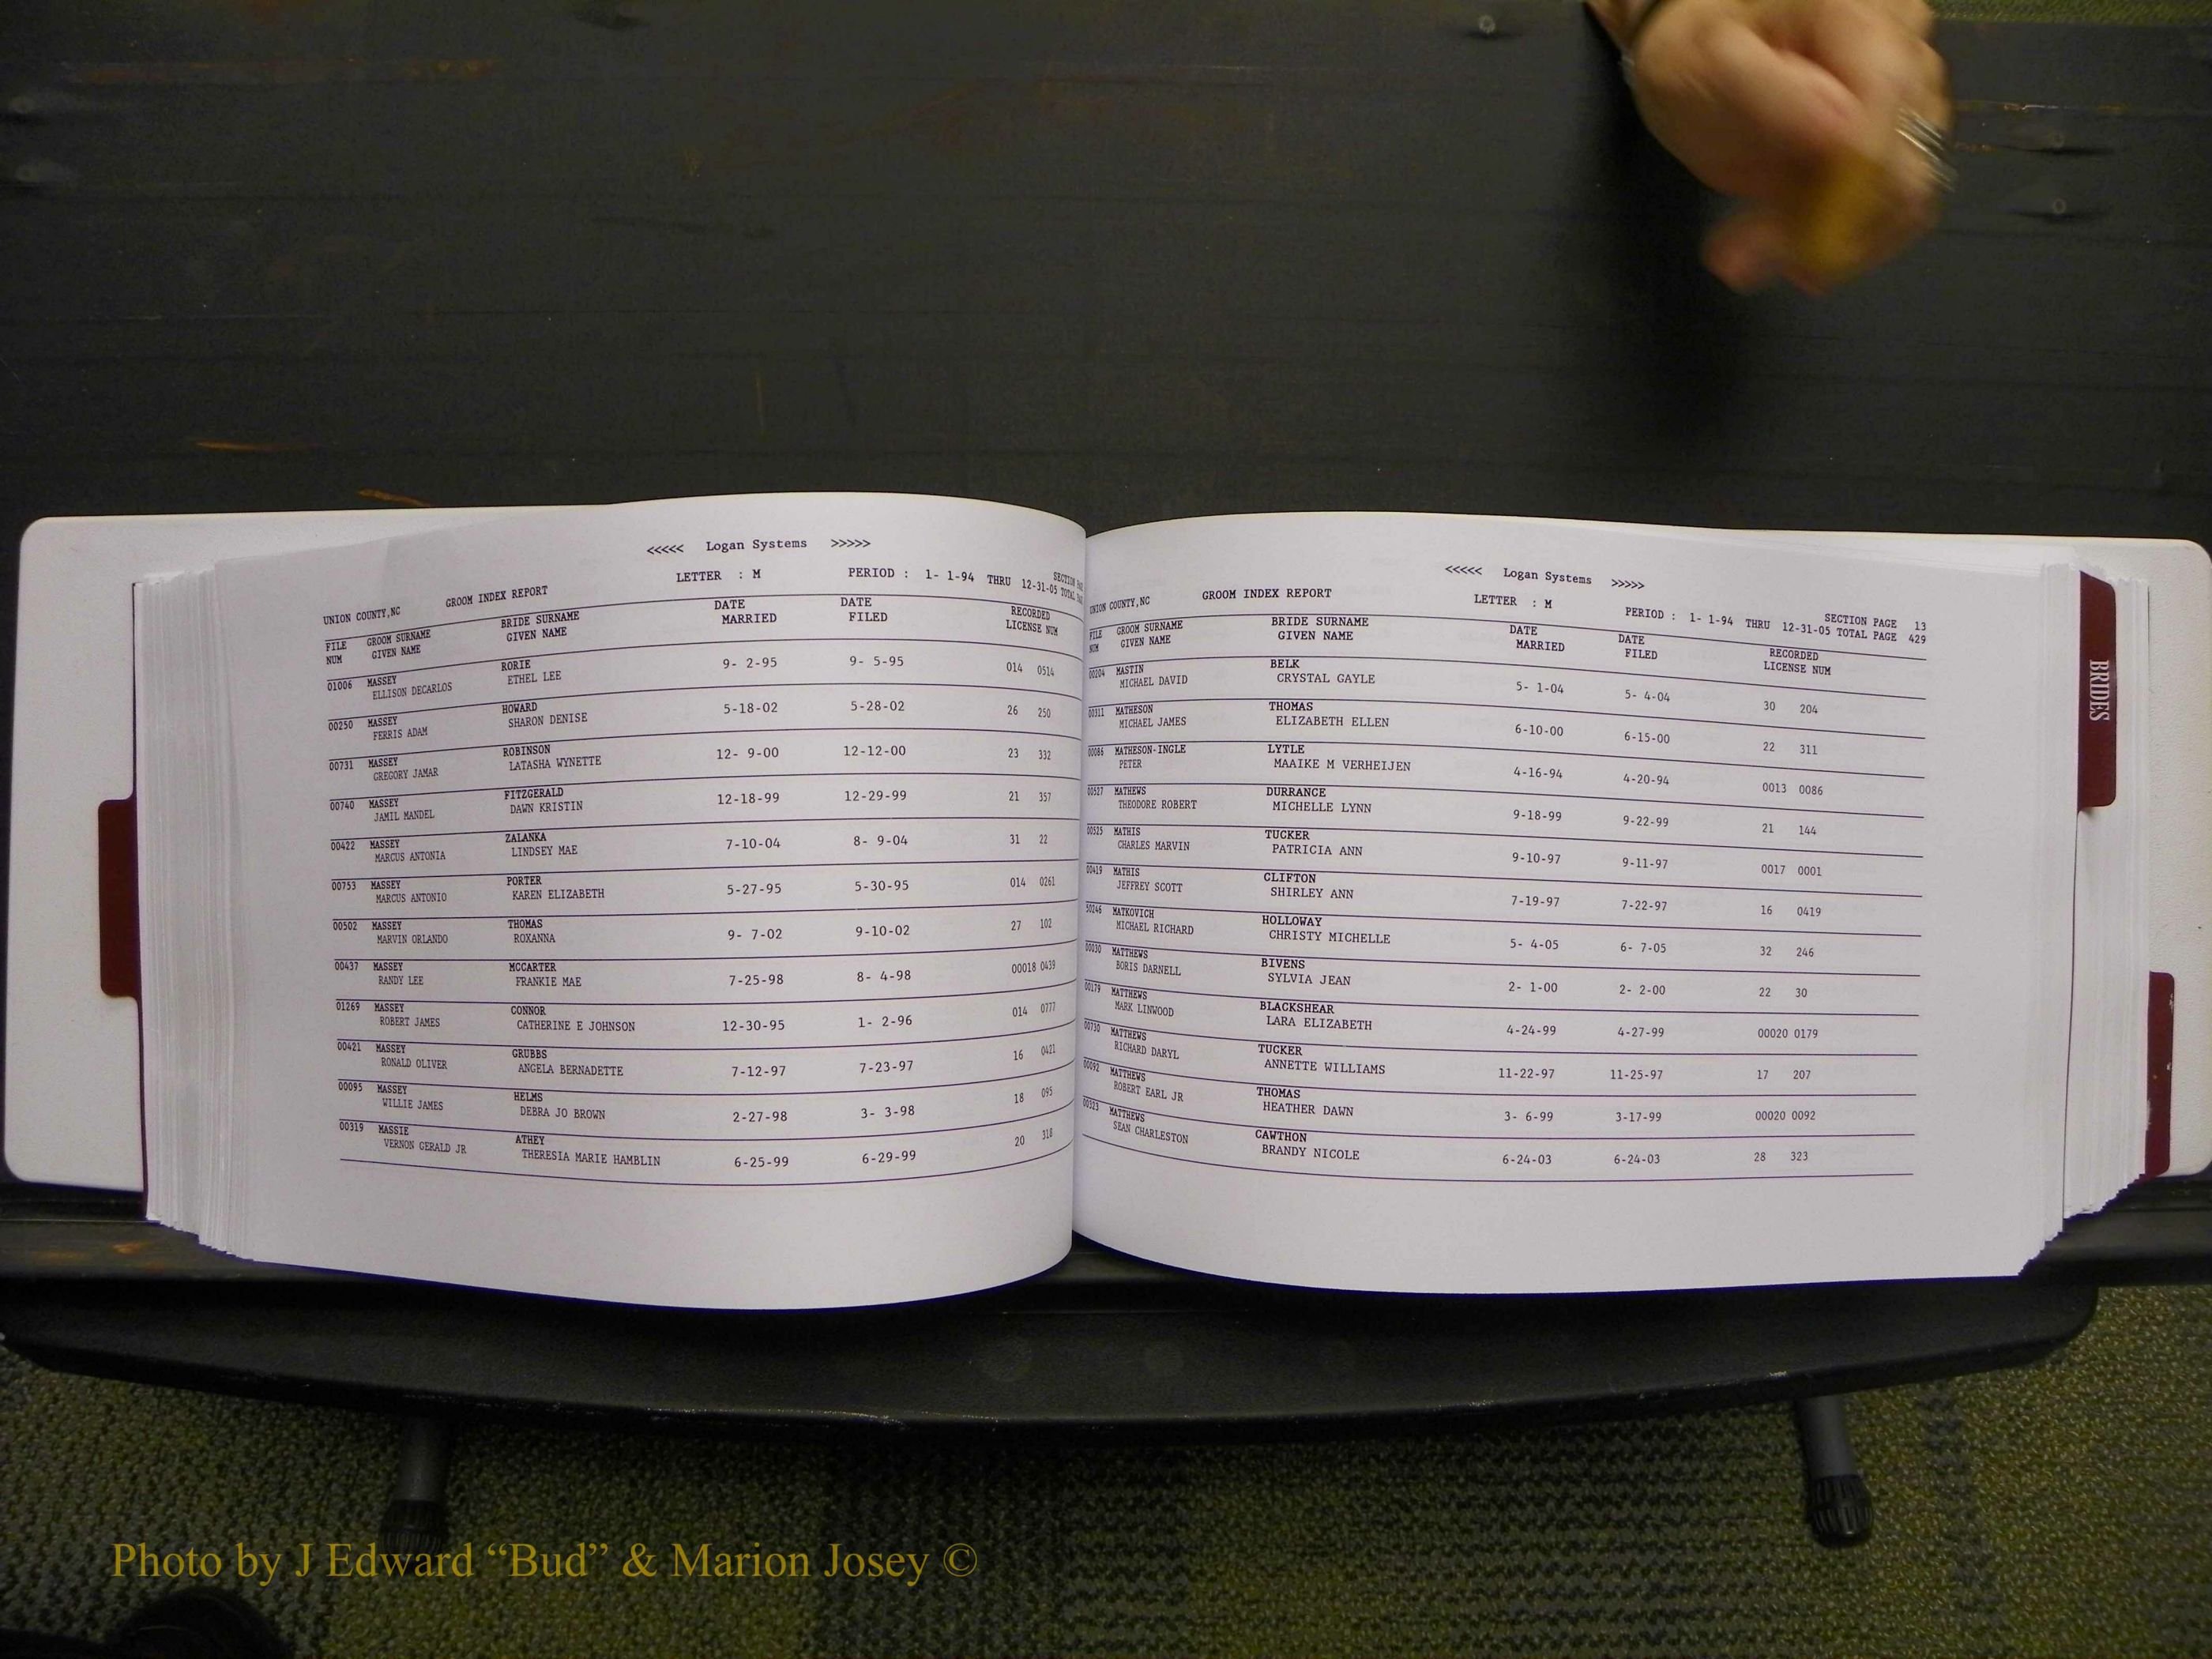 <<<<< Logan Systems >>>>>
UNION COUNTY,NC GROOM INDEX REPORT LETTER : M PERIOD : 1- 1-94 THRU 12-31-05
FILE GROOM SURNAME BRIDE SURNAME DATE DATE RECORDED
NUM GIVEN NAME GIVEN NAME MARRIED FILED LICENSE NUM
01006 MASSEY RORIE 9- 2-95 9- 5-95 014 0514
ELLISON DECARLOS ETHEL LEE
00250 MASSEY HOWARD 5-18-02 5-28-02 26 250
FERRIS ADAM SHARON DENISE
00731 MASSEY ROBINSON 12- 9-00 12-12-00 23 332
GREGORY JAMAR LATASHA WYNETTE
00740 MASSEY FITZGERALD 12-18-99 12-29-99 21 357
JAMIL MANDEL DAWN KRISTIN
00422 MASSEY ZALANKA 7-10-04 8- 9-04 31 22
MARCUS ANTONIA LINDSEY MAE
00753 MASSEY PORTER 5-27-95 5-30-95 014 0261
MARCUS ANTONIO KAREN ELIZABETH
00502 MASSEY THOMAS 9- 7-02 9-10-02 27 102
MARVIN ORLANDO ROXANNA
00437 MASSEY MCCARTER 7-25-98 8- 4-98 00018 0439
RANDY LEE FRANKIE MAE
01269 MASSEY CONNOR 12-30-95 1- 2-96 014 0777
ROBERT JAMES CATHERINE E JOHNSON
00421 MASSEY GRUBBS 7-12-97 7-23-97 16 0421
RONALD OLIVER ANGELA BERNADETTE
00095 MASSEY HELMS 2-27-98 3- 3-98 18 095
WILLIE JAMES DEBRA JO BROWN
00319 MASSIE ATHEY 6-25-99 6-29-99 20 318
VERNON GERALD JR THERESIA MARIE HAMBLIN
<<<<< Logan Systems >>>>>
UNION COUNTY,NC GROOM INDEX REPORT LETTER : M SECTION PAGE 13
PERIOD : 1- 1-94 THRU 12-31-05 TOTAL PAGE 429
FILE GROOM SURNAME BRIDE SURNAME DATE DATE RECORDED
NUM GIVEN NAME GIVEN NAME MARRIED FILED LICENSE NUM
00204 MASTIN BELK 5- 1-04 5- 4-04 30 204
MICHAEL DAVID CRYSTAL GAYLE
00311 MATHESON THOMAS 6-10-00 6-15-00 22 311
MICHAEL JAMES ELIZABETH ELLEN
00086 MATHESON-INGLE LYTLE 4-16-94 4-20-94 0013 0086
PETER MAAIKE M VERHEIJEN
00527 MATHEWS DURRANCE 9-18-99 9-22-99 21 144
THEODORE ROBERT MICHELLE LYNN
00525 MATHIS TUCKER 9-10-97 9-11-97 0017 0001
CHARLES MARVIN PATRICIA ANN
00419 MATHIS CLIFTON 7-19-97 7-22-97 16 0419
JEFFREY SCOTT SHIRLEY ANN
50246 MATKOVICH HOLLOWAY 5- 4-05 6- 7-05 32 246
MICHAEL RICHARD CHRISTY MICHELLE
00030 MATTHEWS BIVENS 2- 1-00 2- 2-00 22 30
BORIS DARNELL SYLVIA JEAN
00179 MATTHEWS BLACKSHEAR 4-24-99 4-27-99 00020 0179
MARK LINWOOD LARA ELIZABETH
00730 MATTHEWS TUCKER 11-22-97 11-25-97 17 207
RICHARD DARYL ANNETTE WILLIAMS
00092 MATTHEWS THOMAS 3- 6-99 3-17-99 00020 0092
ROBERT EARL JR HEATHER DAWN
00323 MATTHEWS CAWTHON 6-24-03 6-24-03 28 323
SEAN CHARLESTON BRANDY NICOLE
BRIDES
Photo by J Edward “Bud” & Marion Josey ©